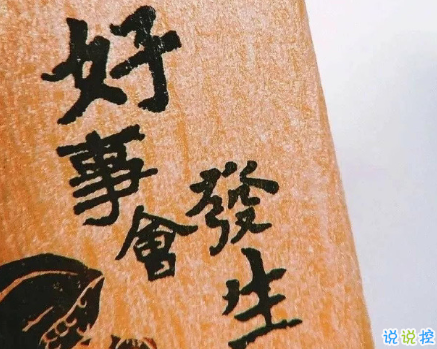 好事會
發生
说说控